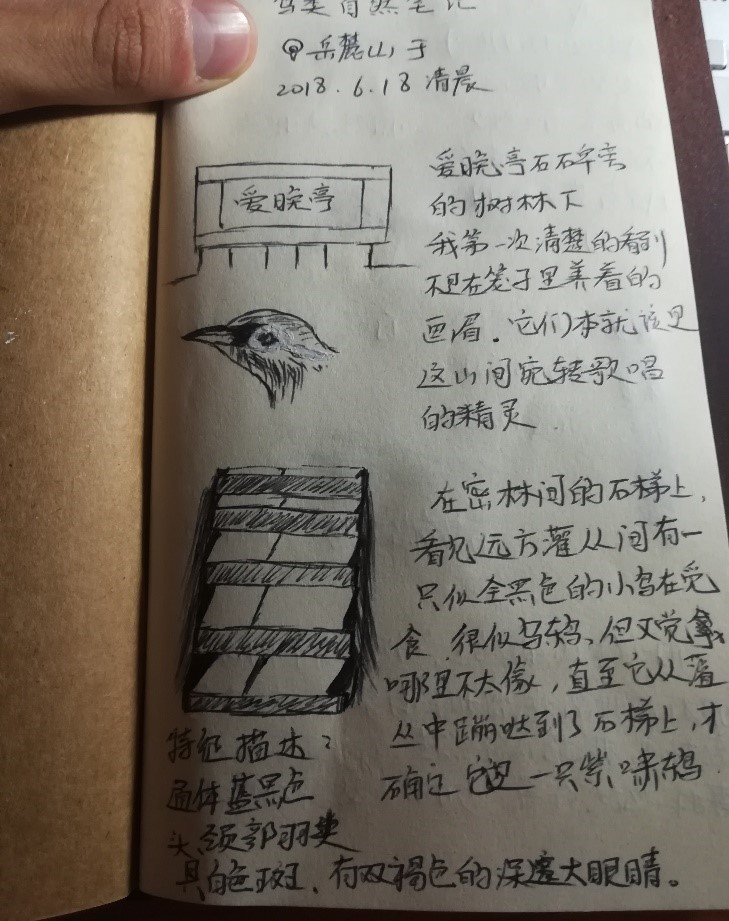 鸟类自然笔记
岳麓山于
2018.6.18 清晨
爱晚亭
爱晚亭石碑旁
的树林下
我第一次清楚的看到
不是在笼子里养着的
画眉。它们本就该是
这山间宛转歌唱
的精灵
在密林间的石梯上,
看见远方灌丛间有一
只似全黑色的小鸟在觅
食 很似乌鸫、但又觉
哪里不太像,直至它从灌
丛中蹦哒到了石梯上,才
确定它是一只紫啸鸫
特征描述:
通体蓝黑色
头、颈部羽类
具白色斑、有双褐色的深邃大眼睛。